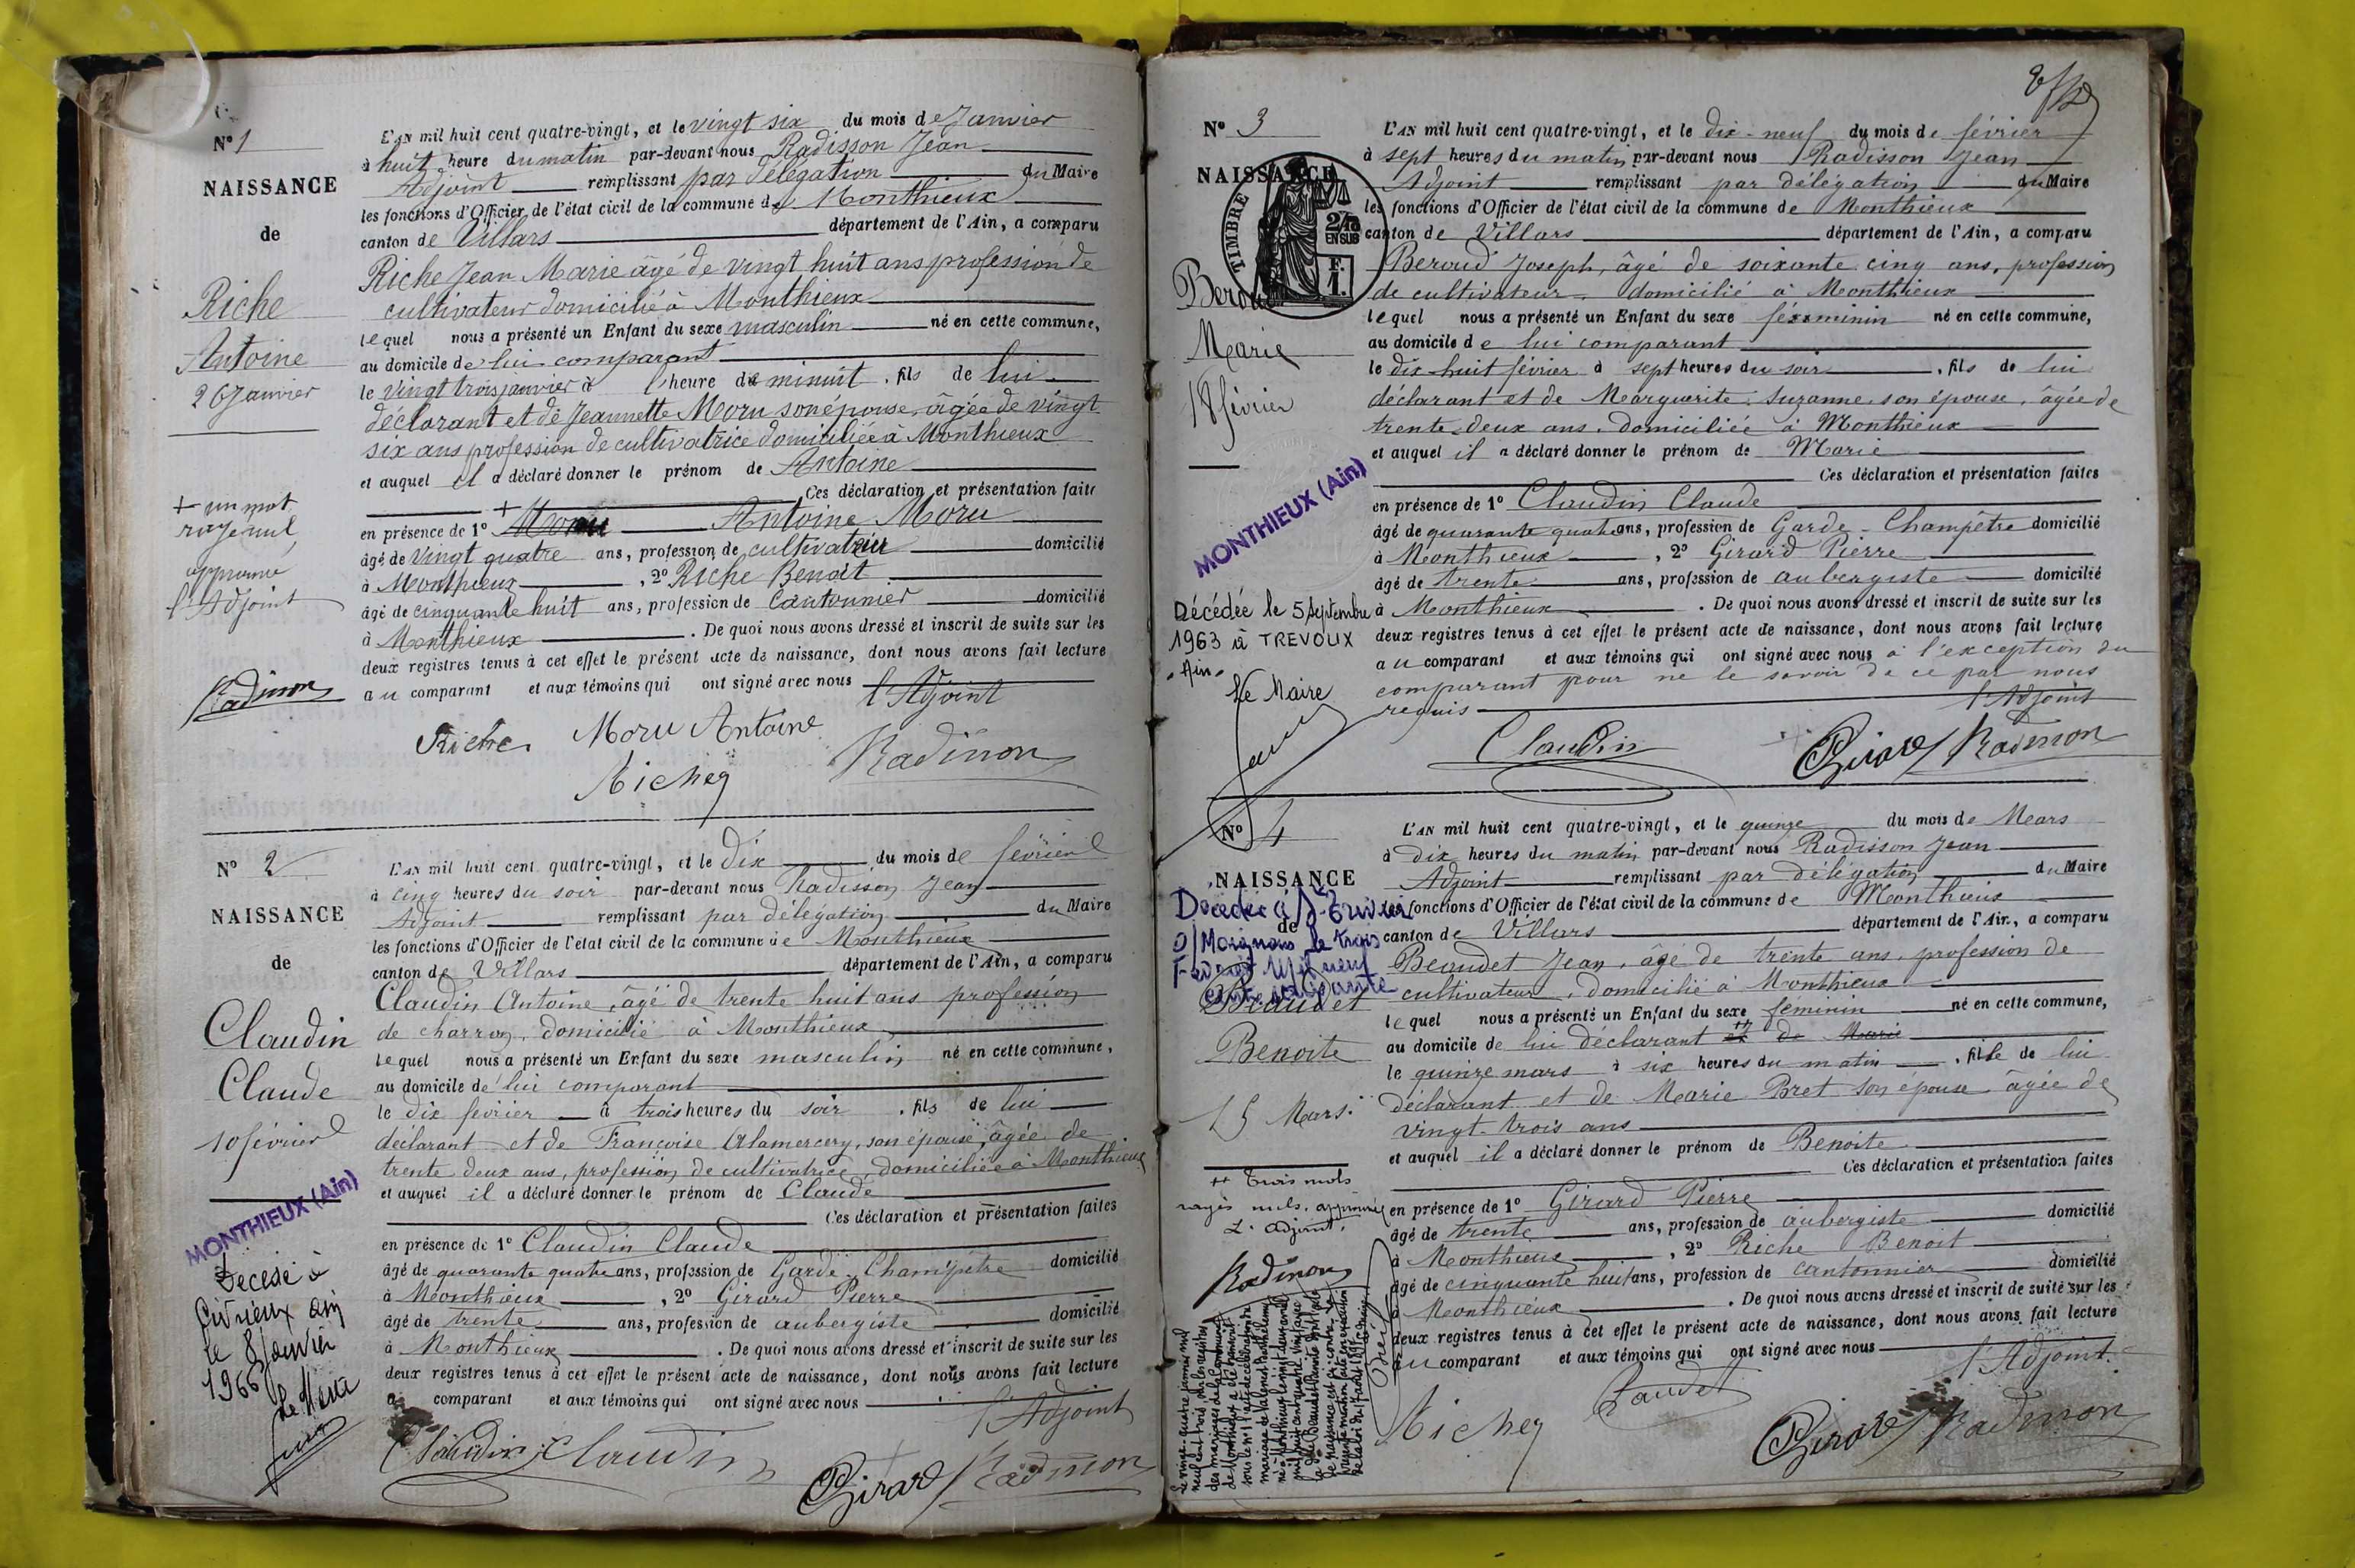 N° 1
NAISSANCE
de
Riche
Antoine
26 Janvier
+ un mot
rayé nul
approuvé
l'Adjoint
Radisson
L'AN mil huit cent quatre-vingt, et le vingt six du mois de Janvier
à huit heure du matin par-devant nous Radisson Jean
Adjoint remplissant par délégation du Maire
les fonctions d'Officier de l'état civil de la commune de Monthieux
canton de Villars département de l'Ain, a comparu
Riche Jean Marie âgé de vingt huit ans profession de
cultivateur domicilié à Monthieux
lequel nous a présenté un Enfant du sexe masculin né en cette commune,
au domicile de lui comparant
le vingt trois janvier à l'heure de minuit, fils de lui
déclarant et de Jeannette Moru son épouse, âgée de vingt
six ans profession de cultivatrice domiciliée à Monthieux
et auquel il a déclaré donner le prénom de Antoine
Ces déclaration et présentation faite
en présence de 1° + Moru Antoine Moru
âgé de vingt quatre ans, profession de cultivateur domicilié
à Monthieux, 2° Riche Benoît
âgé de cinquante huit ans, profession de Cantonnier domicilié
à Monthieux. De quoi nous avons dressé et inscrit de suite sur les
deux registres tenus à cet effet le présent acte de naissance, dont nous avons fait lecture
au comparant et aux témoins qui ont signé avec nous
l'Adjoint
Riche Moru Antoine Radisson
Riche
N° 2
NAISSANCE
de
Claudin
Claude
10 février
MONTHIEUX (Ain)
Décédé à
Civrieux Ain
le 8 Janvier
1966
Le Maire
L'AN mil huit cent quatre-vingt, et le dix du mois de février
à cinq heures du soir par-devant nous Radisson Jean
Adjoint remplissant par délégation du Maire
les fonctions d'Officier de l'état civil de la commune de Monthieux
canton de Villars département de l'Ain, a comparu
Claudin Antoine, âgé de trente huit ans profession
de charron, domicilié à Monthieux
lequel nous a présenté un Enfant du sexe masculin né en cette commune,
au domicile de lui comparant
le dix fevrier à trois heures du soir, fils de lui
déclarant et de Françoise Alamercery, son épouse, âgée de
trente deux ans, profession de cultivatrice, domiciliée à Monthieux
et auquel il a déclaré donner le prénom de Claude
Ces déclaration et présentation faites
en présence de 1° Claudin Claude
âgé de quarante quatre ans, profession de Garde Champêtre domicilié
à Monthieux, 2° Girard Pierre
âgé de trente ans, profession de aubergiste domicilié
à Monthieux. De quoi nous avons dressé et inscrit de suite sur les
deux registres tenus à cet effet le présent acte de naissance, dont nous avons fait lecture
au comparant et aux témoins qui ont signé avec nous
l'Adjoint
Claudin Claudin Girard Radisson
N° 3
NAISSANCE
TIMBRE
2/10
EN SUS
F.
1.
Beroud
Marie
18 février
MONTHIEUX (Ain)
Décédée le 5 Septembre
1963 à TREVOUX
- Ain -
Le Maire
L'AN mil huit cent quatre-vingt, et le dix-neuf du mois de février
à sept heures du matin par-devant nous Radisson Jean
Adjoint remplissant par délégation du Maire
les fonctions d'Officier de l'état civil de la commune de Monthieux
canton de Villars département de l'Ain, a comparu
Beroud Joseph, âgé de soixante cinq ans, profession
de cultivateur domicilié à Monthieux
lequel nous a présenté un Enfant du sexe féminin né en cette commune,
au domicile de lui comparant
le dix-huit février à sept heures du soir, fils de lui
déclarant et de Marguerite Suzanne son épouse, âgée de
trente-deux ans, domiciliée à Monthieux
et auquel il a déclaré donner le prénom de Marie
Ces déclaration et présentation faites
en présence de 1° Claudin Claude
âgé de quarante quatre ans, profession de Garde-Champêtre domicilié
à Monthieux, 2° Girard Pierre
âgé de trente ans, profession de aubergiste domicilié
à Monthieux. De quoi nous avons dressé et inscrit de suite sur les
deux registres tenus à cet effet le présent acte de naissance, dont nous avons fait lecture
au comparant et aux témoins qui ont signé avec nous à l'exception du
comparant pour ne le savoir de ce par nous
requis
l'Adjoint
Claudin Girard Radisson
N° 4
NAISSANCE
de
Décédée à St Trivier
s/ Moignans le trois
Février Mil neuf
cent soixante
Beaudet
Benoite
15 Mars.
++ Trois mots
rayés nuls, approuvés
L'adjoint,
Radisson
L'AN mil huit cent quatre-vingt, et le quinze du mois de Mars
à dix heures du matin par-devant nous Radisson Jean
Adjoint remplissant par délégation du Maire
les fonctions d'Officier de l'état civil de la commune de Monthieux
canton de Villars département de l'Ain, a comparu
Beaudet Jean, âgé de trente ans, profession de
cultivateur, domicilié à Monthieux
lequel nous a présenté un Enfant du sexe féminin né en cette commune,
au domicile de lui déclarant ++ et de Marie
le quinze mars à six heures du matin, fille de lui
déclarant et de Marie Pret son épouse âgée de
vingt-trois ans
et auquel il a déclaré donner le prénom de Benoite
Ces déclaration et présentation faites
en présence de 1° Girard Pierre
âgé de trente ans, profession de aubergiste domicilié
à Monthieux, 2° Riche Benoit
âgé de cinquante huit ans, profession de cantonnier domicilié
à Monthieux. De quoi nous avons dressé et inscrit de suite sur les
deux registres tenus à cet effet le présent acte de naissance, dont nous avons fait lecture
au comparant et aux témoins qui ont signé avec nous
l'Adjoint.
Riche Baudet Girard Radisson